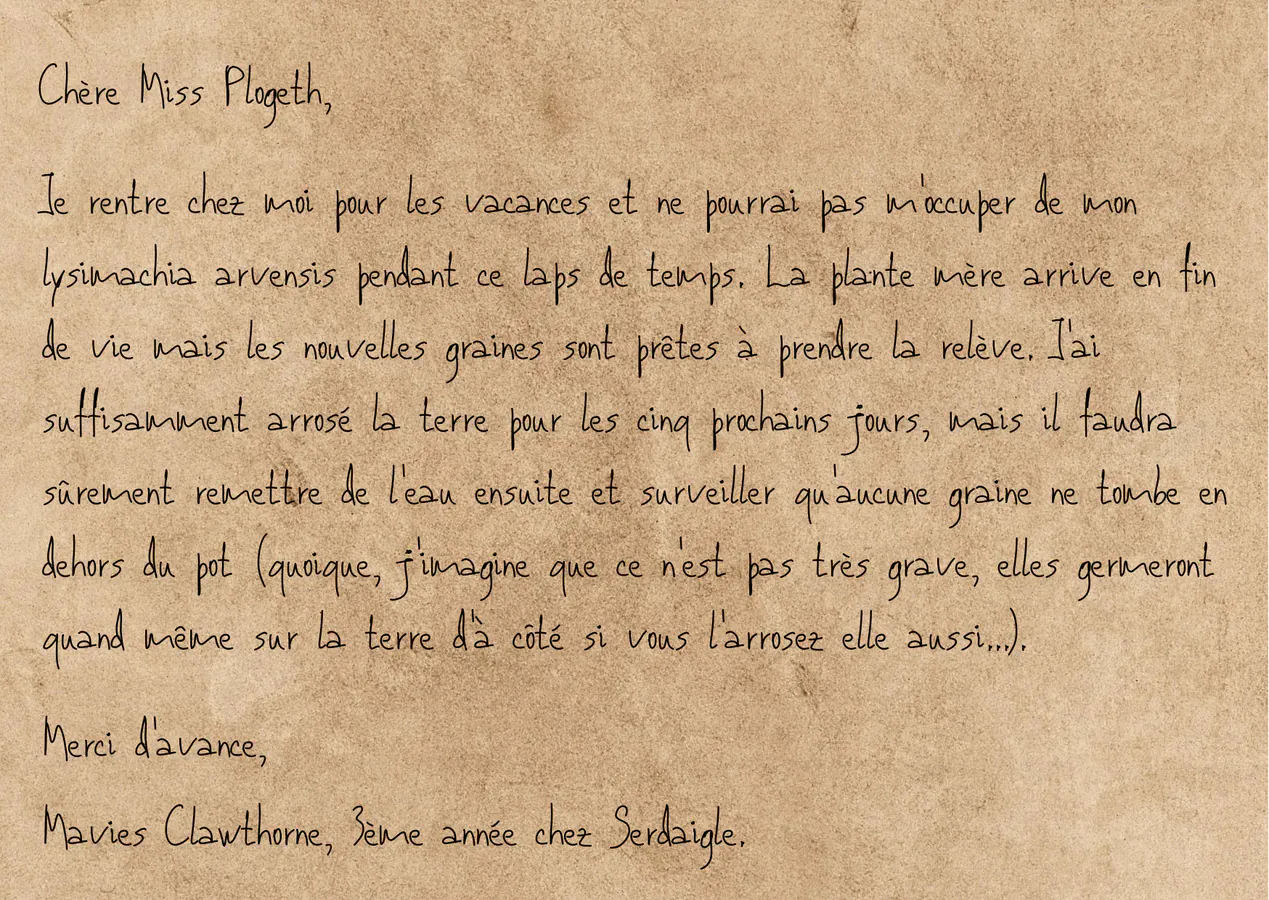 Chère Miss Plogeth,
Je rentre chez moi pour les vacances et ne pourrai pas m'occuper de mon
lysimachia arvensis pendant ce laps de temps. La plante mère arrive en fin
de vie mais les nouvelles graines sont prêtes à prendre la relève. J'ai
suffisamment arrosé la terre pour les cinq prochains jours, mais il faudra
sûrement remettre de l'eau ensuite et surveiller qu'aucune graine ne tombe en
dehors du pot (quoique, j'imagine que ce n'est pas très grave, elles germeront
quand même sur la terre d'à côté si vous l'arrosez elle aussi...).
Merci d'avance,
Mavies Clawthorne, 3ème année chez Serdaigle.